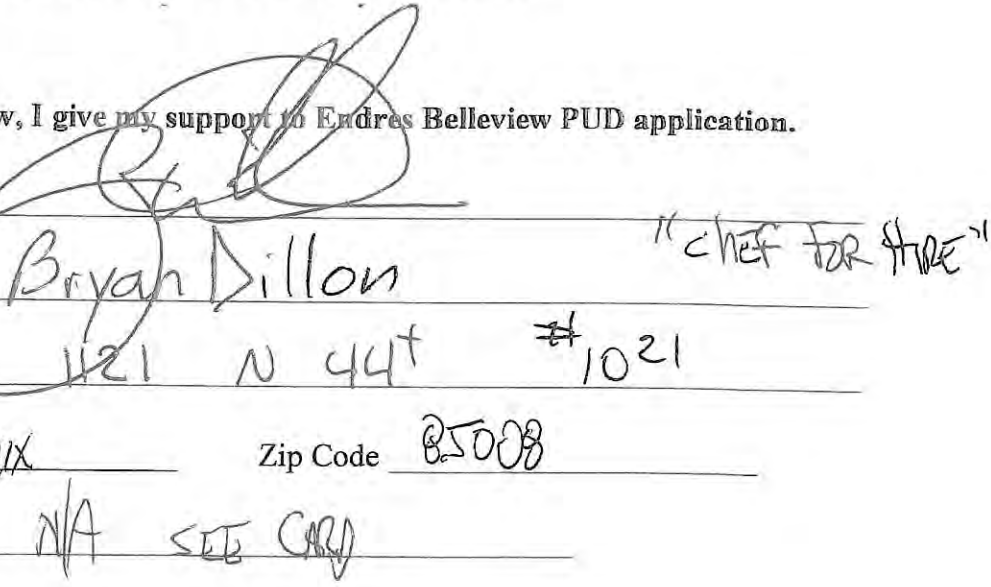 w, I give my support to Endres Belleview PUD application.
Bryan Dillon "CHEF FOR HIRE"
1121 N 44t #1021
NIX Zip Code 85008
N/A SEE CARD